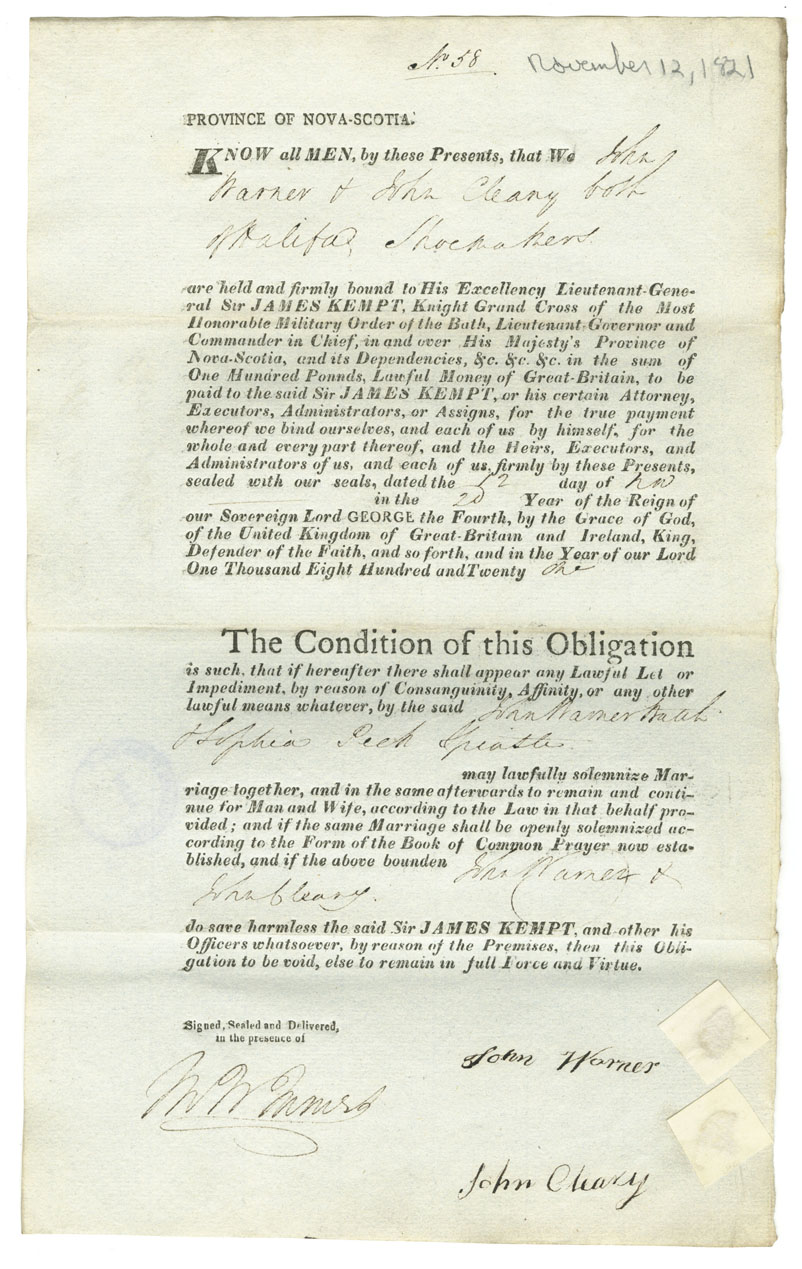 No 58
November 12, 1821
PROVINCE OF NOVA-SCOTIA.
KNOW all MEN, by these Presents, that We John
Warner & John Cleary both
of Halifax Shoemakers.
are held and firmly bound to His Excellency Lieutenant-Gene-
ral Sir JAMES KEMPT, Knight Grand Cross of the Most
Honorable Military Order of the Bath, Lieutenant-Governor and
Commander in Chief, in and over His Majesty's Province of
Nova-Scotia, and its Dependencies, &c. &c. &c. in the sum of
One Mundred Ponnds, Lawful Money of Great-Britain, to be
paid to the said Sir JAMES KEMPT, or his certain Attorney,
Executors, Administrators, or Assigns, for the true payment
whereof we bind ourselves, and each of us by himself, for the
whole and every part thereof, and the Heirs, Executors, and
Administrators of us, and each of us, firmly by these Presents,
sealed with our seals, dated the 12 day of Nov
in the 2d Year of the Reign of
our Sovereign Lord GEORGE the Fourth, by the Grace of God,
of the United Kingdom of Great-Britain and Ireland, King,
Defender of the Faith, and so forth, and in the Year of our Lord
One Thousand Eight Hundred and Twenty One
The Condition of this Obligation
is such, that if hereafter there shall appear any Lawful Let or
Impediment, by reason of Consanguinity, Affinity, or any other
lawful means whatever, by the said John Warner Batch
& Sophia Peek Spinster
may lawfully solemnize Mar-
riage together, and in the same afterwards to remain and conti-
nue for Man and Wife, according to the Law in that behalf pro-
vided; and if the same Marriage shall be openly solemnized ac-
cording to the Form of the Book of Common Prayer now esta-
blished, and if the above bounden John Warner &
John Cleary.
do save harmless the said Sir JAMES KEMPT, and other his
Officers whatsoever, by reason of the Premises, then this Obli-
gation to be void, else to remain in full Force and Virtue.
Signed, Sealed and Delivered,
in the presence of
John Warner
John Cleary